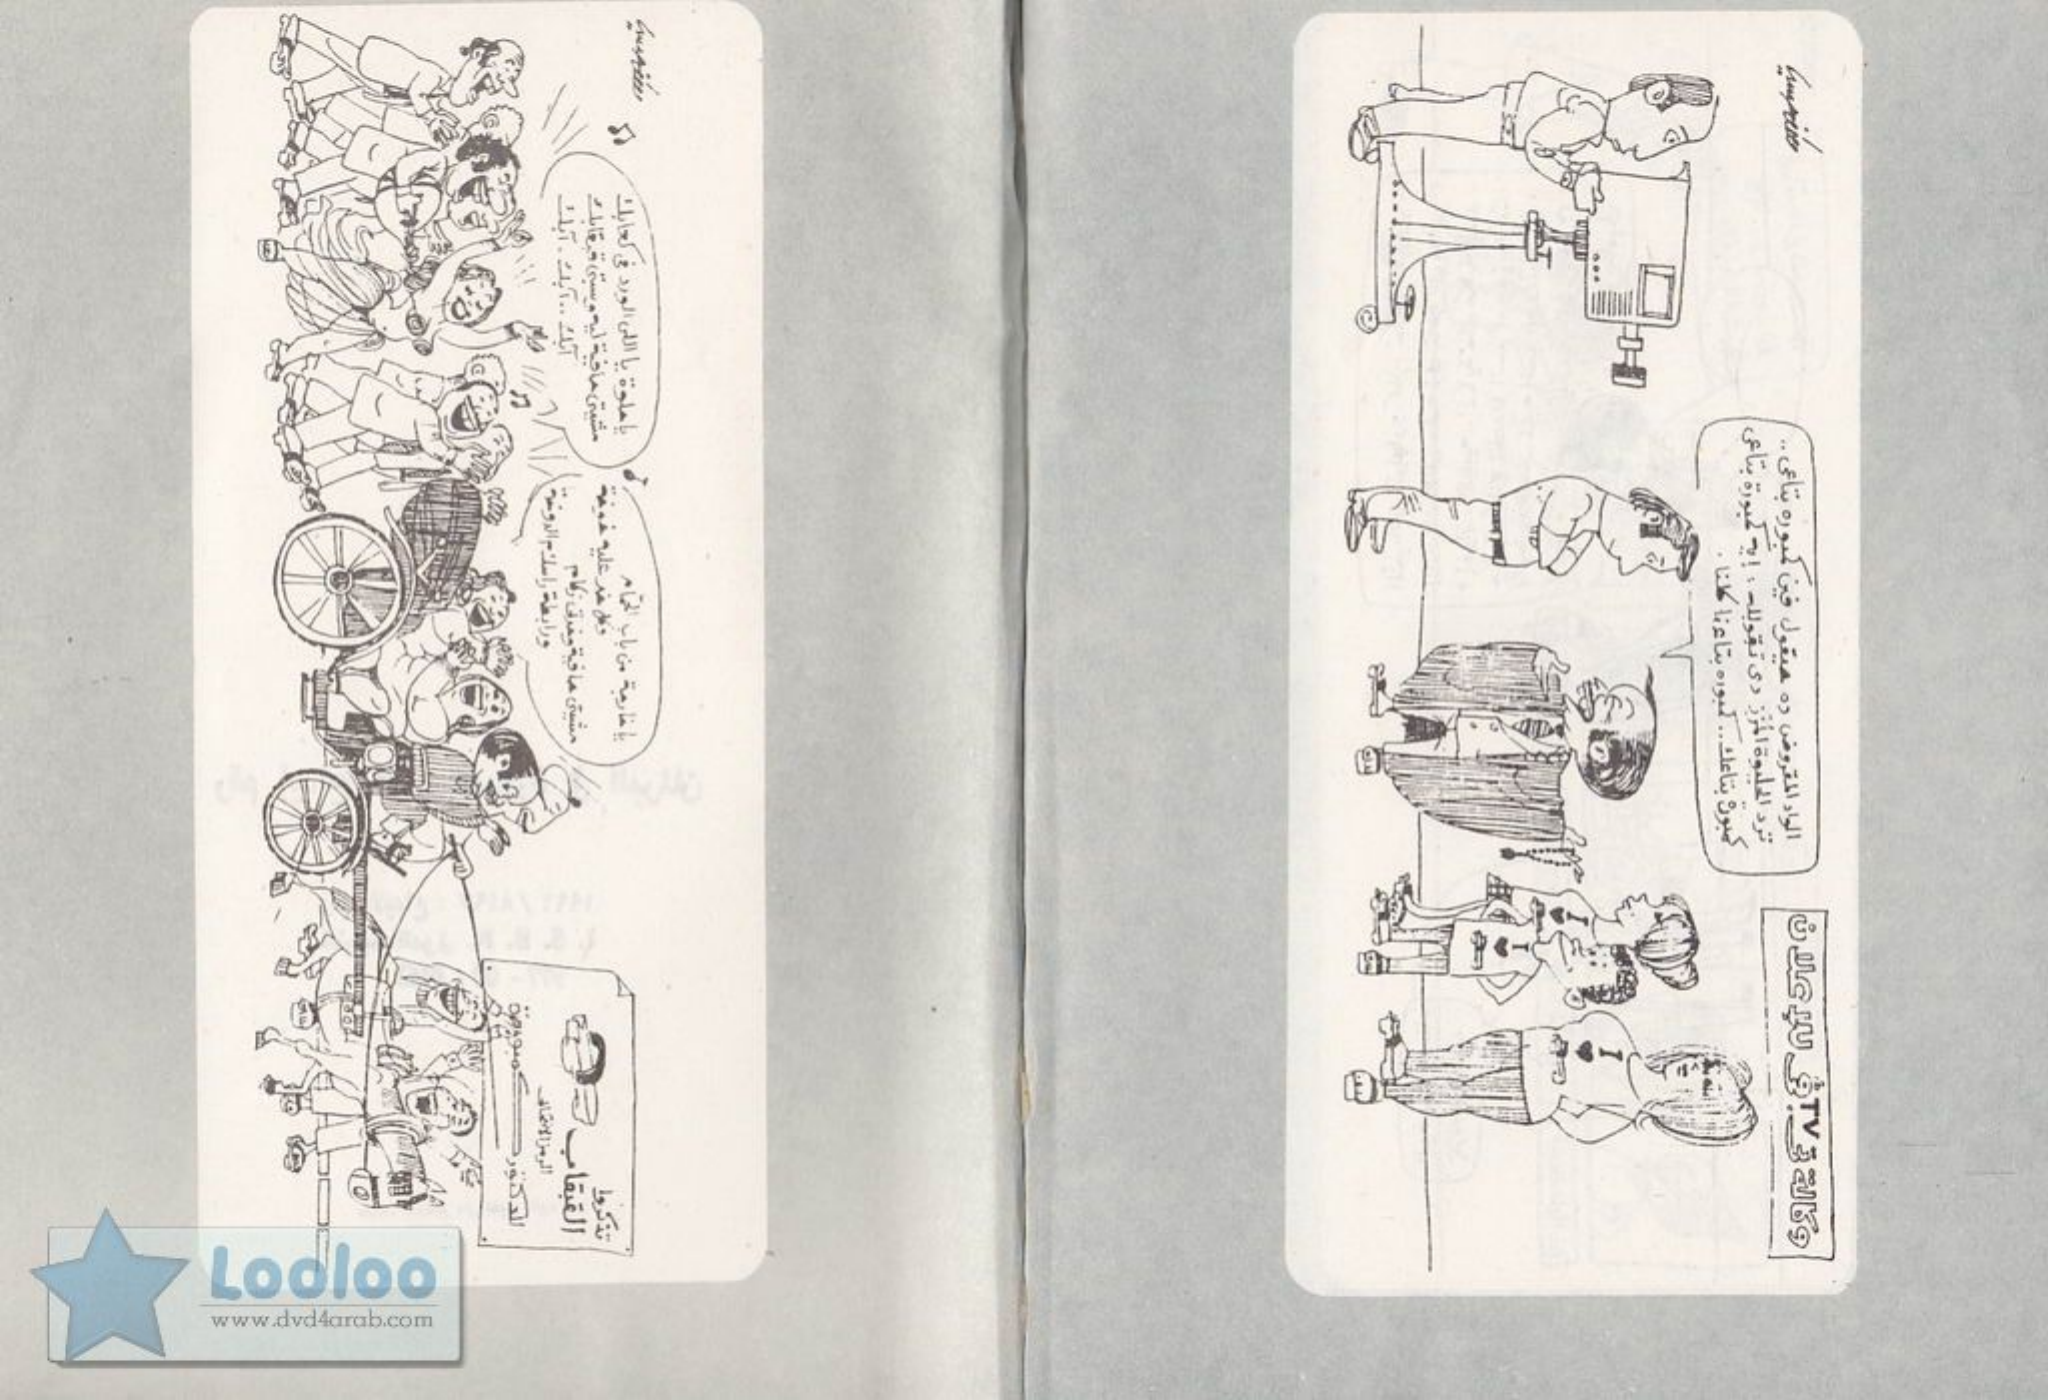 وكالة TV فى سبرعلان
الواد المقروض ده هيقول فين كمبوره بتاعى ..
ترد الحليوة المُزز دى تقولك : إيه كمبورة بتاعى
كمبورة بتاعك .. كمبوره بتاعنا كلنا .
يا حلوة يا اللى الورد فى كعابك
مشيتى حافية ليه وسبتى قبقابك
آبك .. آبك . آبك
يا خارجة من باب الحمّام
وكل خد عليه خوخة
مشيتى حافية وفى زكام
ورابطة راسك م الدوخة
تذكروا
القبقاب
الرمز الانتخابى
للدكتور كمبورة
Looloo
www.dvd4arab.com